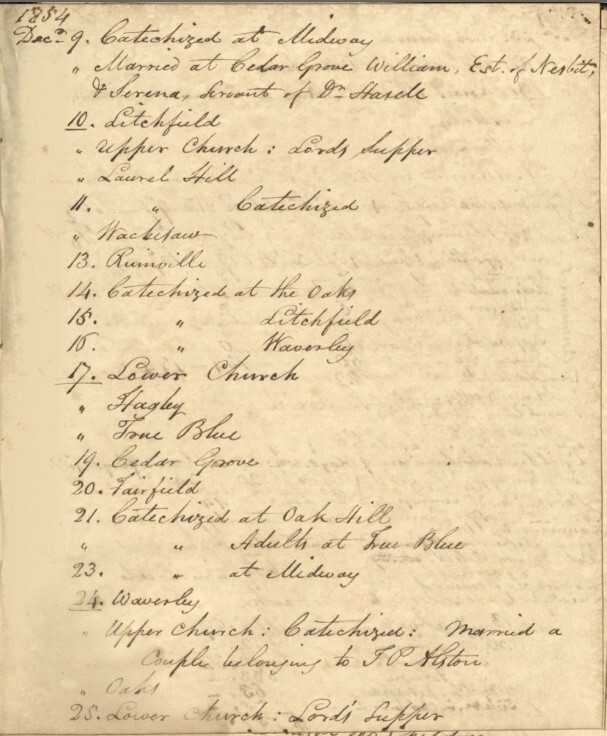 1854
Decr 9. Catechized at Midway
" Married at Cedar Grove William, Est. of Nesbit,
& Serena, Servant of Dr Hasell
10. Litchfield
" Upper Church : Lords Supper
" Laurel Hill
11. " Catechized
" Wachesaw
13. Rumville
14. Catechized at the Oaks
15. " Litchfield
16. " Waverley
17. Lower Church
" Hagley
" True Blue
19. Cedar Grove
20. Fairfield
21. Catechized at Oak Hill
" " Adults at True Blue
23. " at Midway
24. Waverley
" Upper Church : Catechized : Married a
Couple belonging to J. P. Alston
" Oaks
25. Lower Church : Lord's Supper